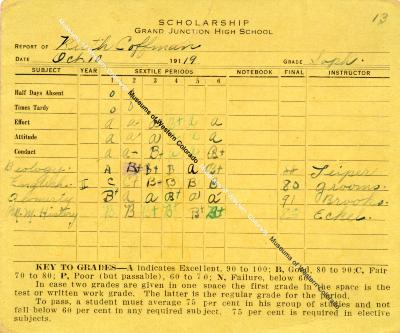 13
SCHOLARSHIP
GRAND JUNCTION HIGH SCHOOL
REPORT OF Ruth Coffman
DATE Oct 10 1919 GRADE Soph.
SUBJECT YEAR SEXTILE PERIODS NOTEBOOK FINAL INSTRUCTOR
1 2 3 4 5 6
Half Days Absent 0
Times Tardy 0
Effort a a a a
Attitude a a a a
Conduct a a- B+ B+
Biology A B+ B B a B+
English I C B B B B 80 Grooms.
Geometry B+ a a B+ a a 91 Brooks
M. M. History B B B B+ B+ Eckel
KEY TO GRADES—A indicates Excellent, 90 to 100; B, Good, 80 to 90; C, Fair
70 to 80; P, Poor (but passable), 60 to 70; N, Failure, below 60.
In case two grades are given in one space the first grade in the space is the
test or written work grade. The latter is the regular grade for the period.
To pass, a student must average 75 per cent in his group of studies and not
fall below 60 per cent in any required subject. 75 per cent is required in elective
subjects.
Museums of Western Colorado
Museums of Western Colorado
Museums of Western Colorado